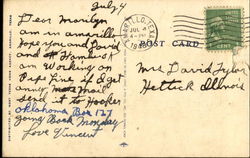 July 4
Dear Marilyn
am in amarillo
hope you and David
and Hamlick
am Working on
Pipe Line if I get
any mail
send it to Hooker
Oklahoma Box 127
going Back Monday
Love Vincent
AMARILLO, TEXAS
JUL
4 - PM
POST CARD
Mrs David Tyler
Hettick Illinois